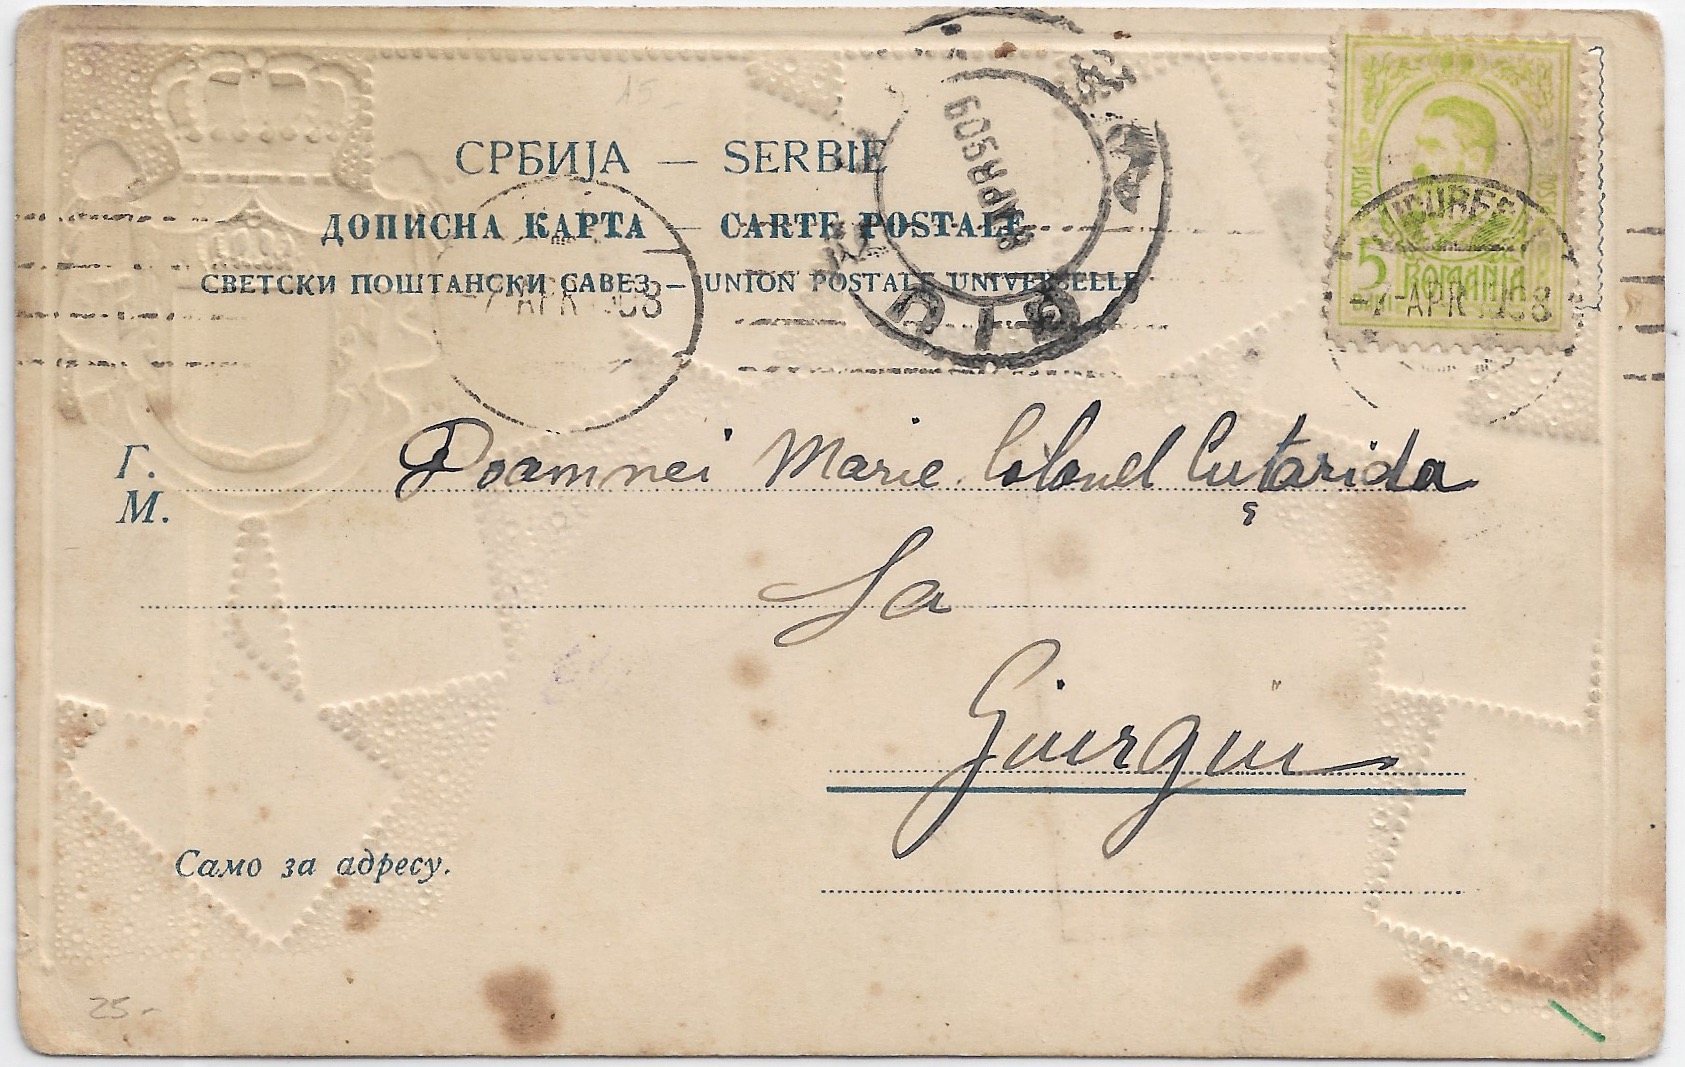 15
СРБИЈА — SERBIE
ДОПИСНА КАРТА — CARTE POSTALE
СВЕТСКИ ПОШТАНСКИ САВЕЗ — UNION POSTALE UNIVERSELLE
POSTA
5
ROMANIA
-7 APR 1908
-7 APR 1908
8 APR 609
Г.
М.
Doamnei Marie Colonel Cuțarida
La
Giurgiu
Само за адресу.
25-